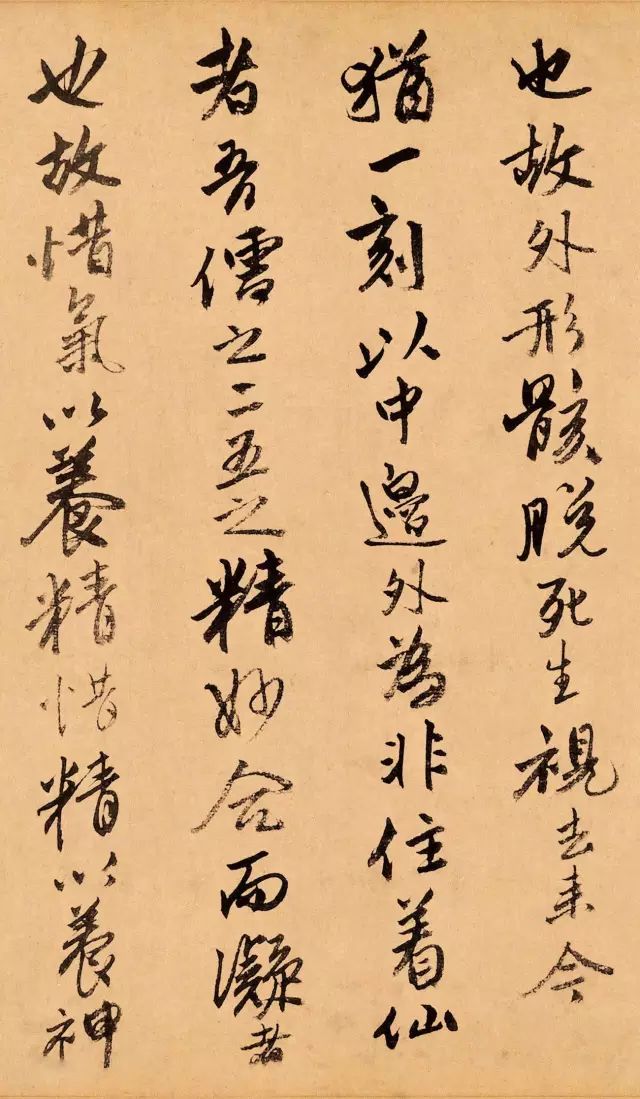 也故外形骸脱死生視去来今
猶一刻以中邊外為非住着仙
者吾儒之二五之精妙合而凝者
也故惜氣以養精惜精以養神